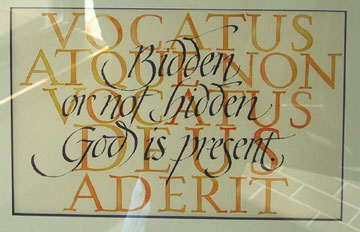 VOCATUS
ATQUE NON
VOCATUS
DEUS
ADERIT
Bidden,
or not bidden
God is present.